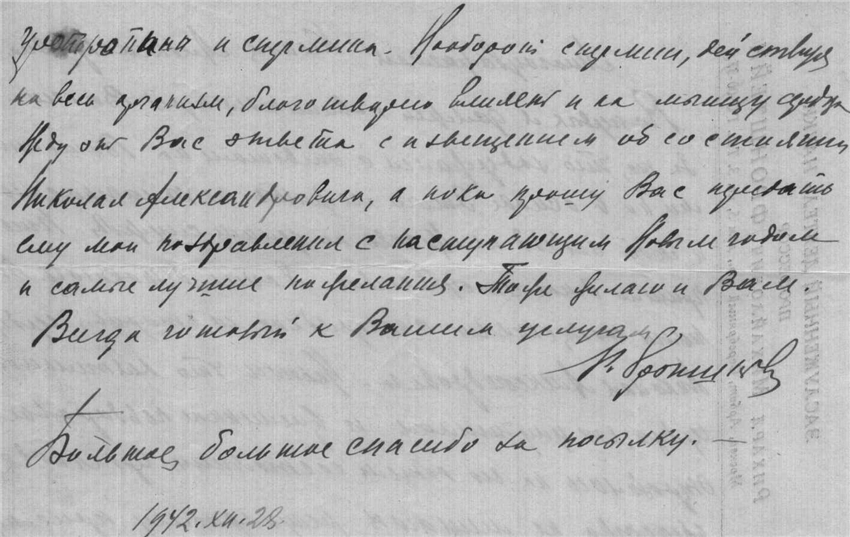 уротропина и спермина. Наоборот спермин, действуя
на весь организм, благотворно влияет и на мышцу сердца
Жду от Вас ответа с извещением об состоянии
Николая Александровича, а пока прошу Вас передать
ему мои поздравления с наступающим Новым годом
и самые лучшие пожелания. Тоже желаю и Вам.
Всегда готовый к Вашим услугам
Большое, большое спасибо за посылку. —
1942.XII.28.